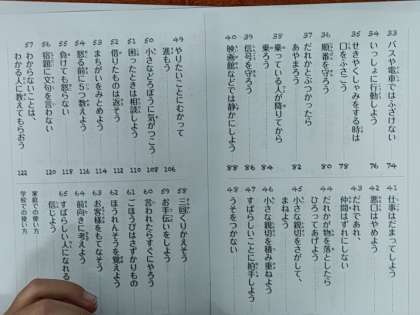 33 バスや電車ではふざけない 74
34 いっしょに行動しよう 76
35 せきやくしゃみをする時は
口をふさごう 78
36 順番を守ろう 80
37 だれかとぶつかったら
あやまろう 82
38 乗っている人が降りてから
乗ろう 84
39 信号を守ろう 86
40 映画館などでは静かにしよう 88
41 仕事はだまってしよう
42 悪口はやめよう
43 だれであれ、
仲間はずれにしない
44 だれかが物を落としたら
ひろってあげよう
45 小さな親切をさがして、
まねよう
46 小さな親切を積み重ねよう
47 すばらしいことに拍手しよう
48 うそをつかない
49 やりたいことにむかって
進もう 106
50 小さなどろぼうに気がつこう 108
51 困ったときは相談しよう 110
52 借りたものは返そう
53 まちがいをみとめよう 114
54 怒る前に5つ数えよう 116
55 負けても怒らない 118
56 宿題に文句を言わない 120
57 わからないことは、
わかる人に教えてもらおう 122
58 三回くりかえそう
59 お手伝いをしよう
60 言われたらすぐにやろう
61 ごほうびはさずかりもの
62 ほうれんそうを覚えよう
63 お客様をもてなそう
64 前向きに考えよう
65 すばらしい人になれると
信じよう
家庭での使い方
学校での使い方